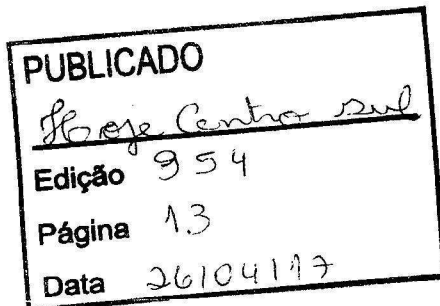 PUBLICADO
Hoje Centro Sul
Edição 954
Página 13
Data 26/04/17